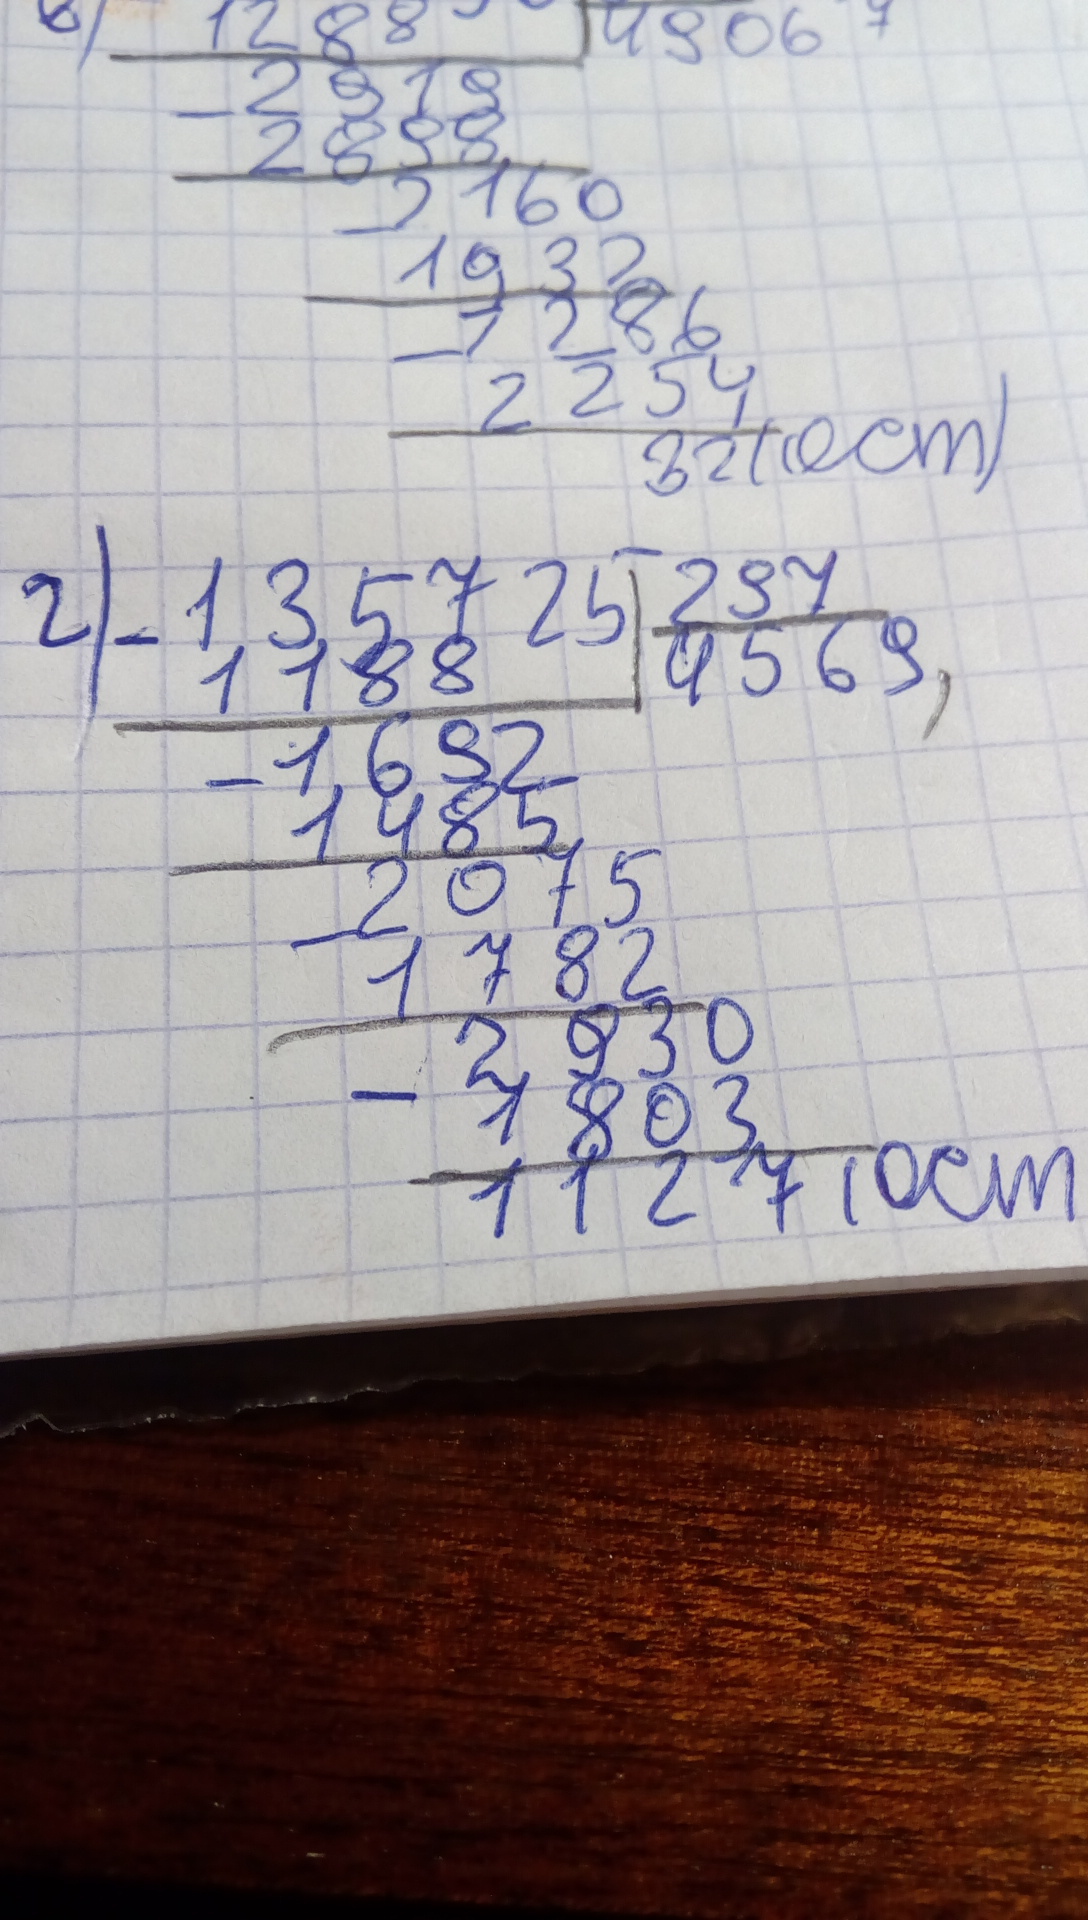 1288 49067
- 2919
2898
- 2160
1932
- 2286
2254
32(ост)
2) - 1357725 297
1188 4569,
- 1692
1485
- 2075
1782
- 2930
1803
1127 (ост